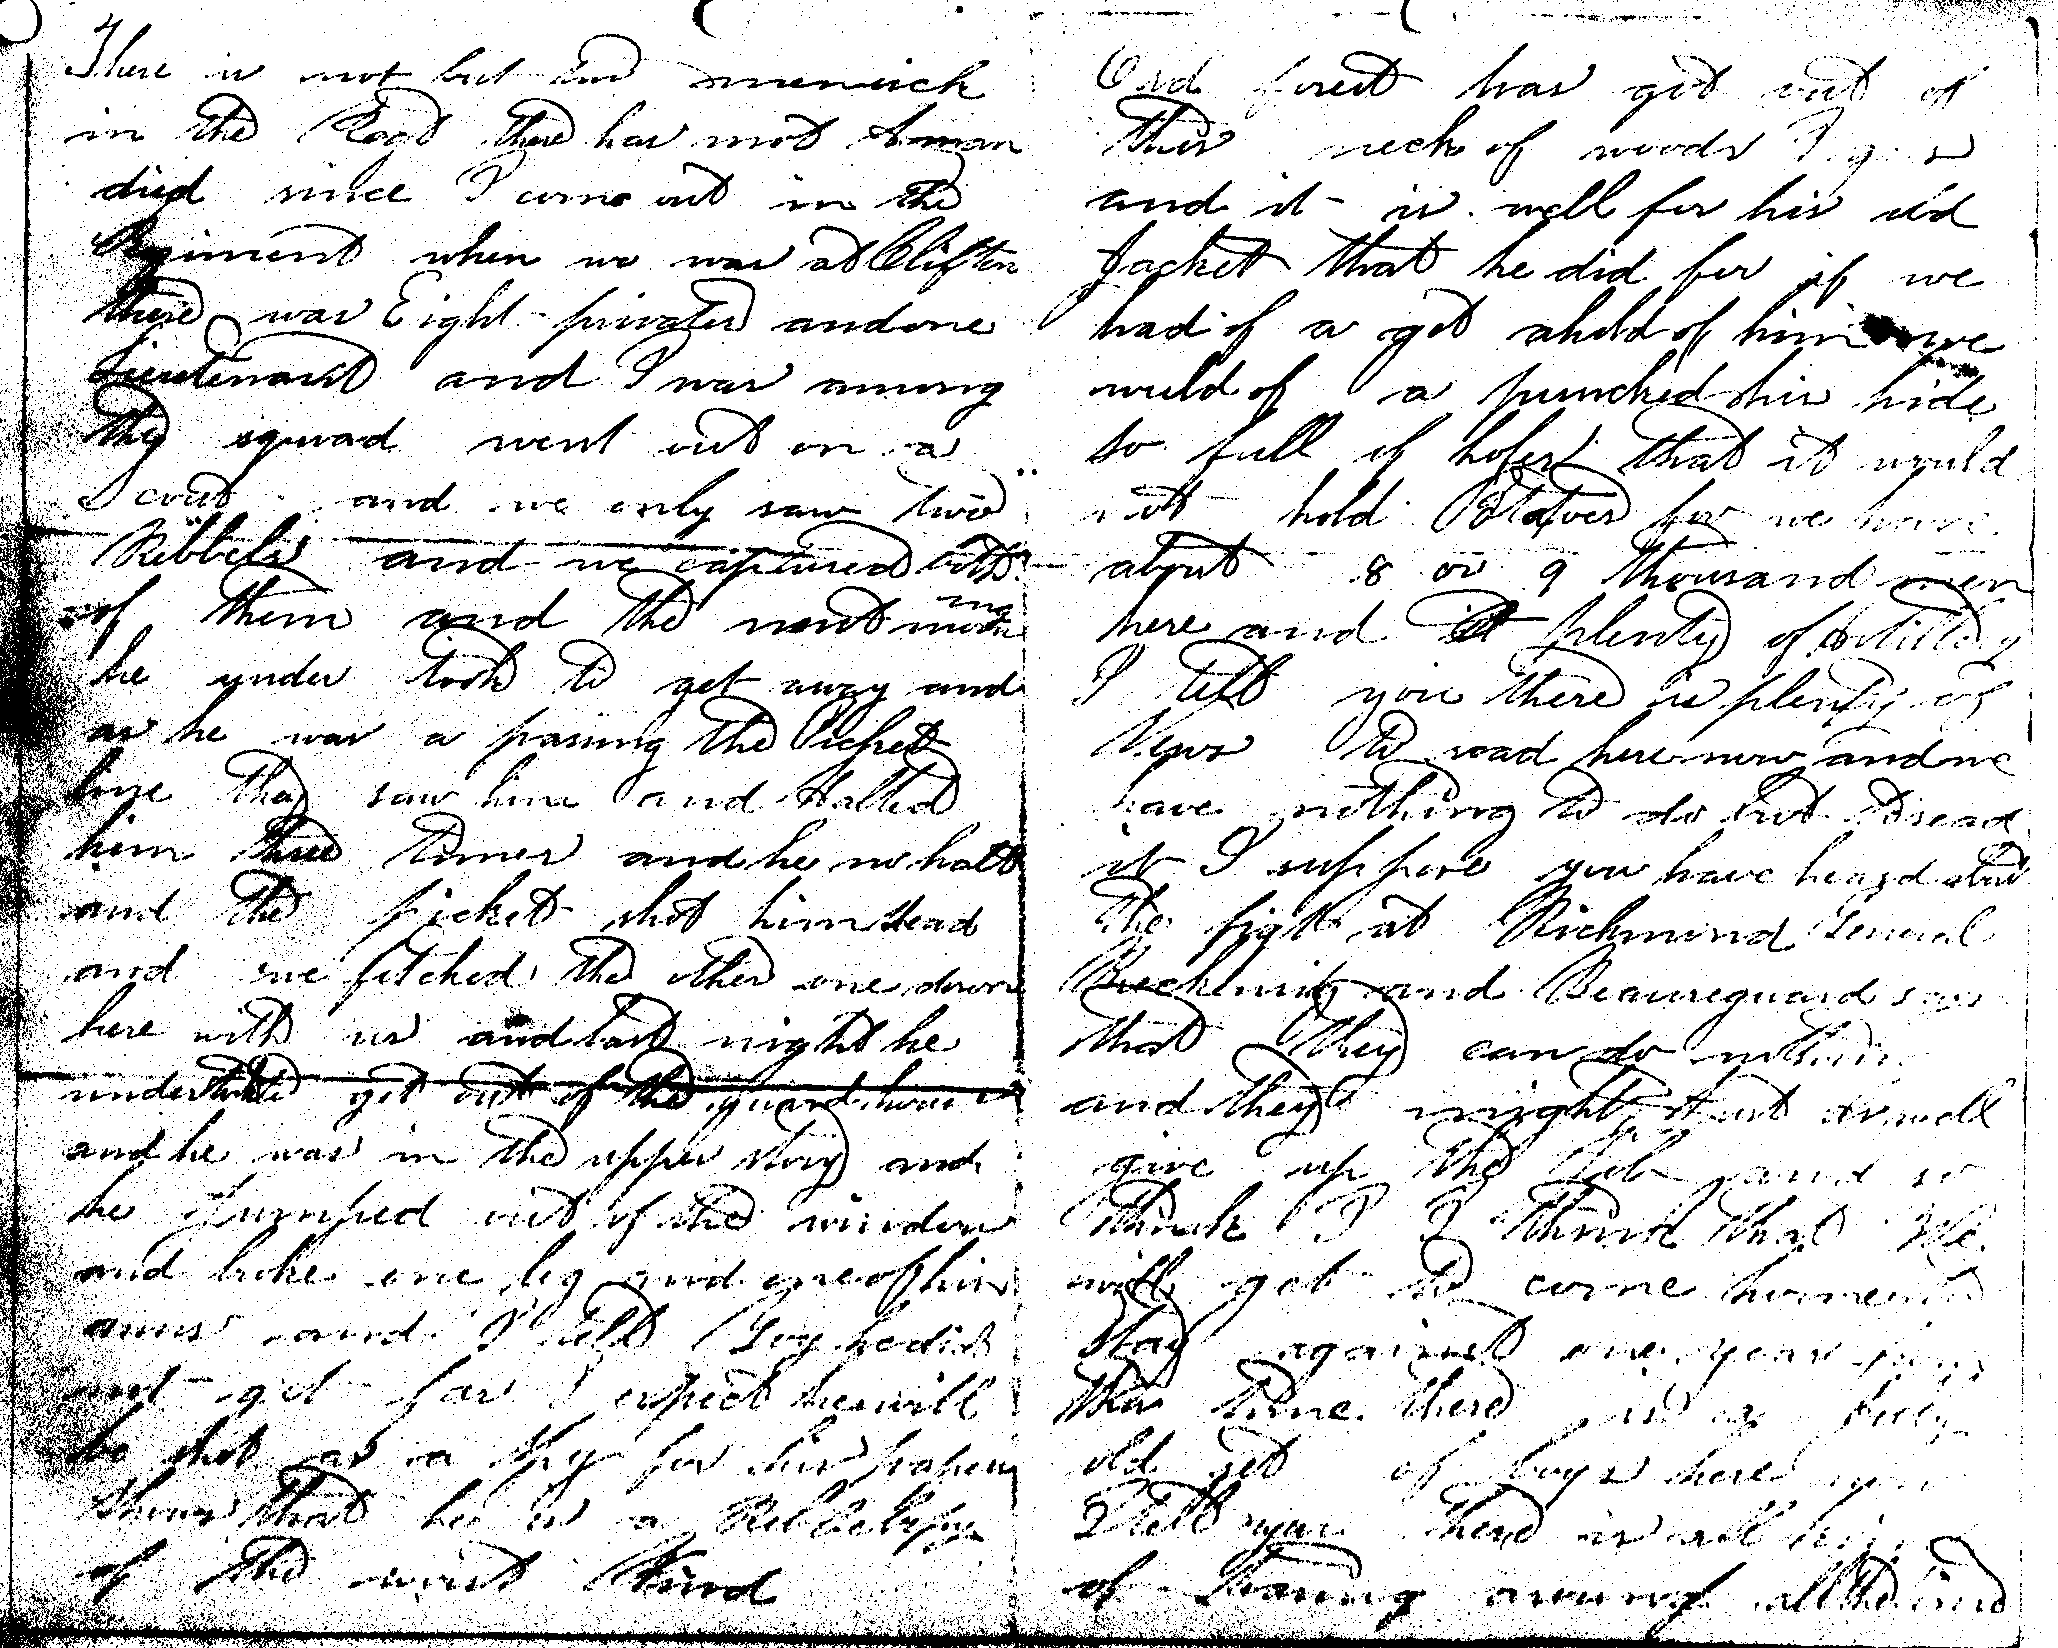 There is not but two menn sick
in the Regt there has not Aman
died since I come out in the
Regiment when we was at Clifton
there was Eight privates andone
Lieutenant and I was among
the squad went out on a
Scout and we only saw two
Ribbels and we captured both
of them and the next morning
he under took to get away and
as he was a passing the Picket
line they saw him and Halted
him three times and he no halt
and the picket shot him dead
and we fetched the other one down
here with us and last night he
undertook to get out of the guard house
and he was in the upper story and
he Jumped out of the window
and broke one leg and one of his
arms and I tell you he did
not get far I expect he will
be shot as a spy for his papers
shows that he is a Rebbel spy
of the worst Kind
Old forest has got out of
this neck of woods I
and it is well for his old
Jacket that he did for if we
had of a got ahold of him we
would of a punched his hide
so full of holes that it would
not hold Potatoes for we have
about 8 or 9 thousand men
here and plenty of Artillery
I tell you there is plenty of
News to read here now and we
have nothing to do but to read
it I suppose you have heard about
the fight at Richmond General
and Beaureguard says
that they can do nothing
and they might Just as well
give up the Job and so
think I I think that We
will get to come home and
stay against one year from
this time there is a bully
old set of boys here
I tell you there is all kinds
of around all the time